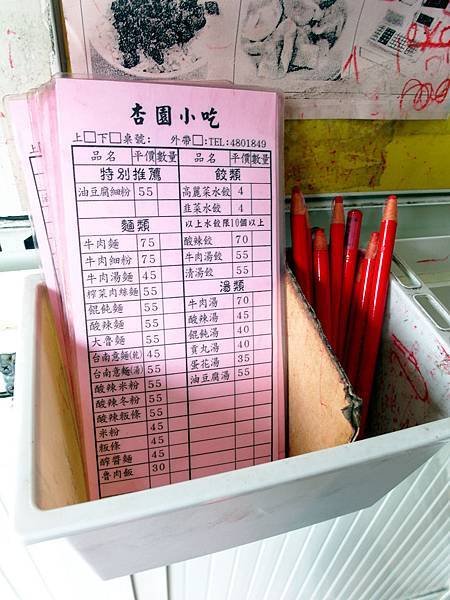 杏園小吃
上□下□桌號: 外帶□:TEL:4801849
品名 平價 數量 品名 平價 數量
特別推薦
油豆腐細粉 55
麵類
牛肉麵 75
牛肉細粉 75
牛肉湯麵 45
榨菜肉絲麵 55
餛飩麵 55
酸辣麵 55
大魯麵 55
台南意麵(乾) 45
台南意麵(湯) 55
酸辣米粉 55
酸辣冬粉 55
酸辣粄條 55
米粉 45
粄條 45
醡醬麵 45
魯肉飯 30
餃類
高麗菜水餃 4
韭菜水餃 4
以上水餃限10個以上
酸辣餃 70
牛肉湯餃 55
清湯餃 55
湯類
牛肉湯 70
酸辣湯 45
餛飩湯 40
貢丸湯 40
蛋花湯 35
油豆腐湯 55